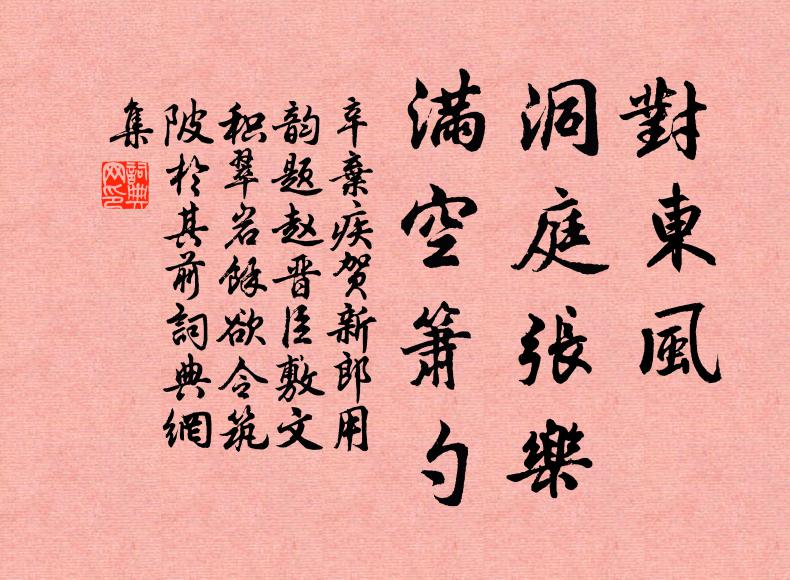 對東風
洞庭張樂
滿空簫勺
辛棄疾贺新郎用
韵题赵晋臣敷文
积翠岩餘欲令筑
陂於其前詞典網
集
詞典网印